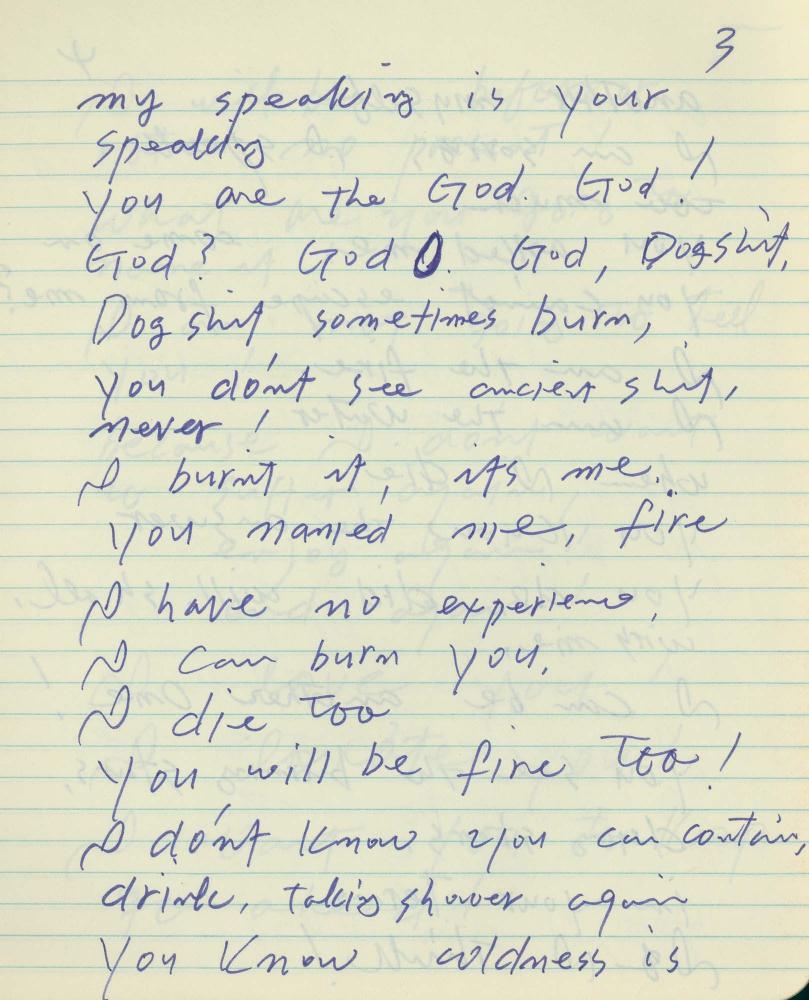 3
my speaking is your
speaking
you are the God. God!
God? God O. God, Dogshit,
Dog shit sometimes burn,
you don't see ancient shit,
never!
I burnt it, its me.
you named me, fire
I have no experience,
I can burn you,
I die too
you will be fire too!
I don't know you can contain,
drink, taking shower again
you know coldness is